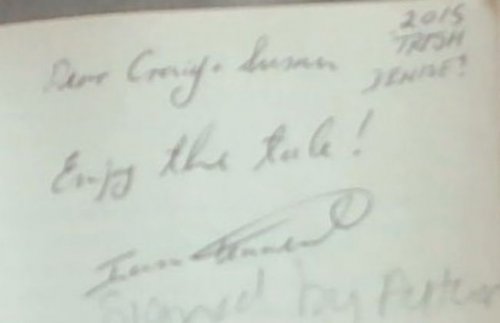 2015
TRISH
DENISE?
Dear Craig + Susan
Enjoy the tale!
Signed by